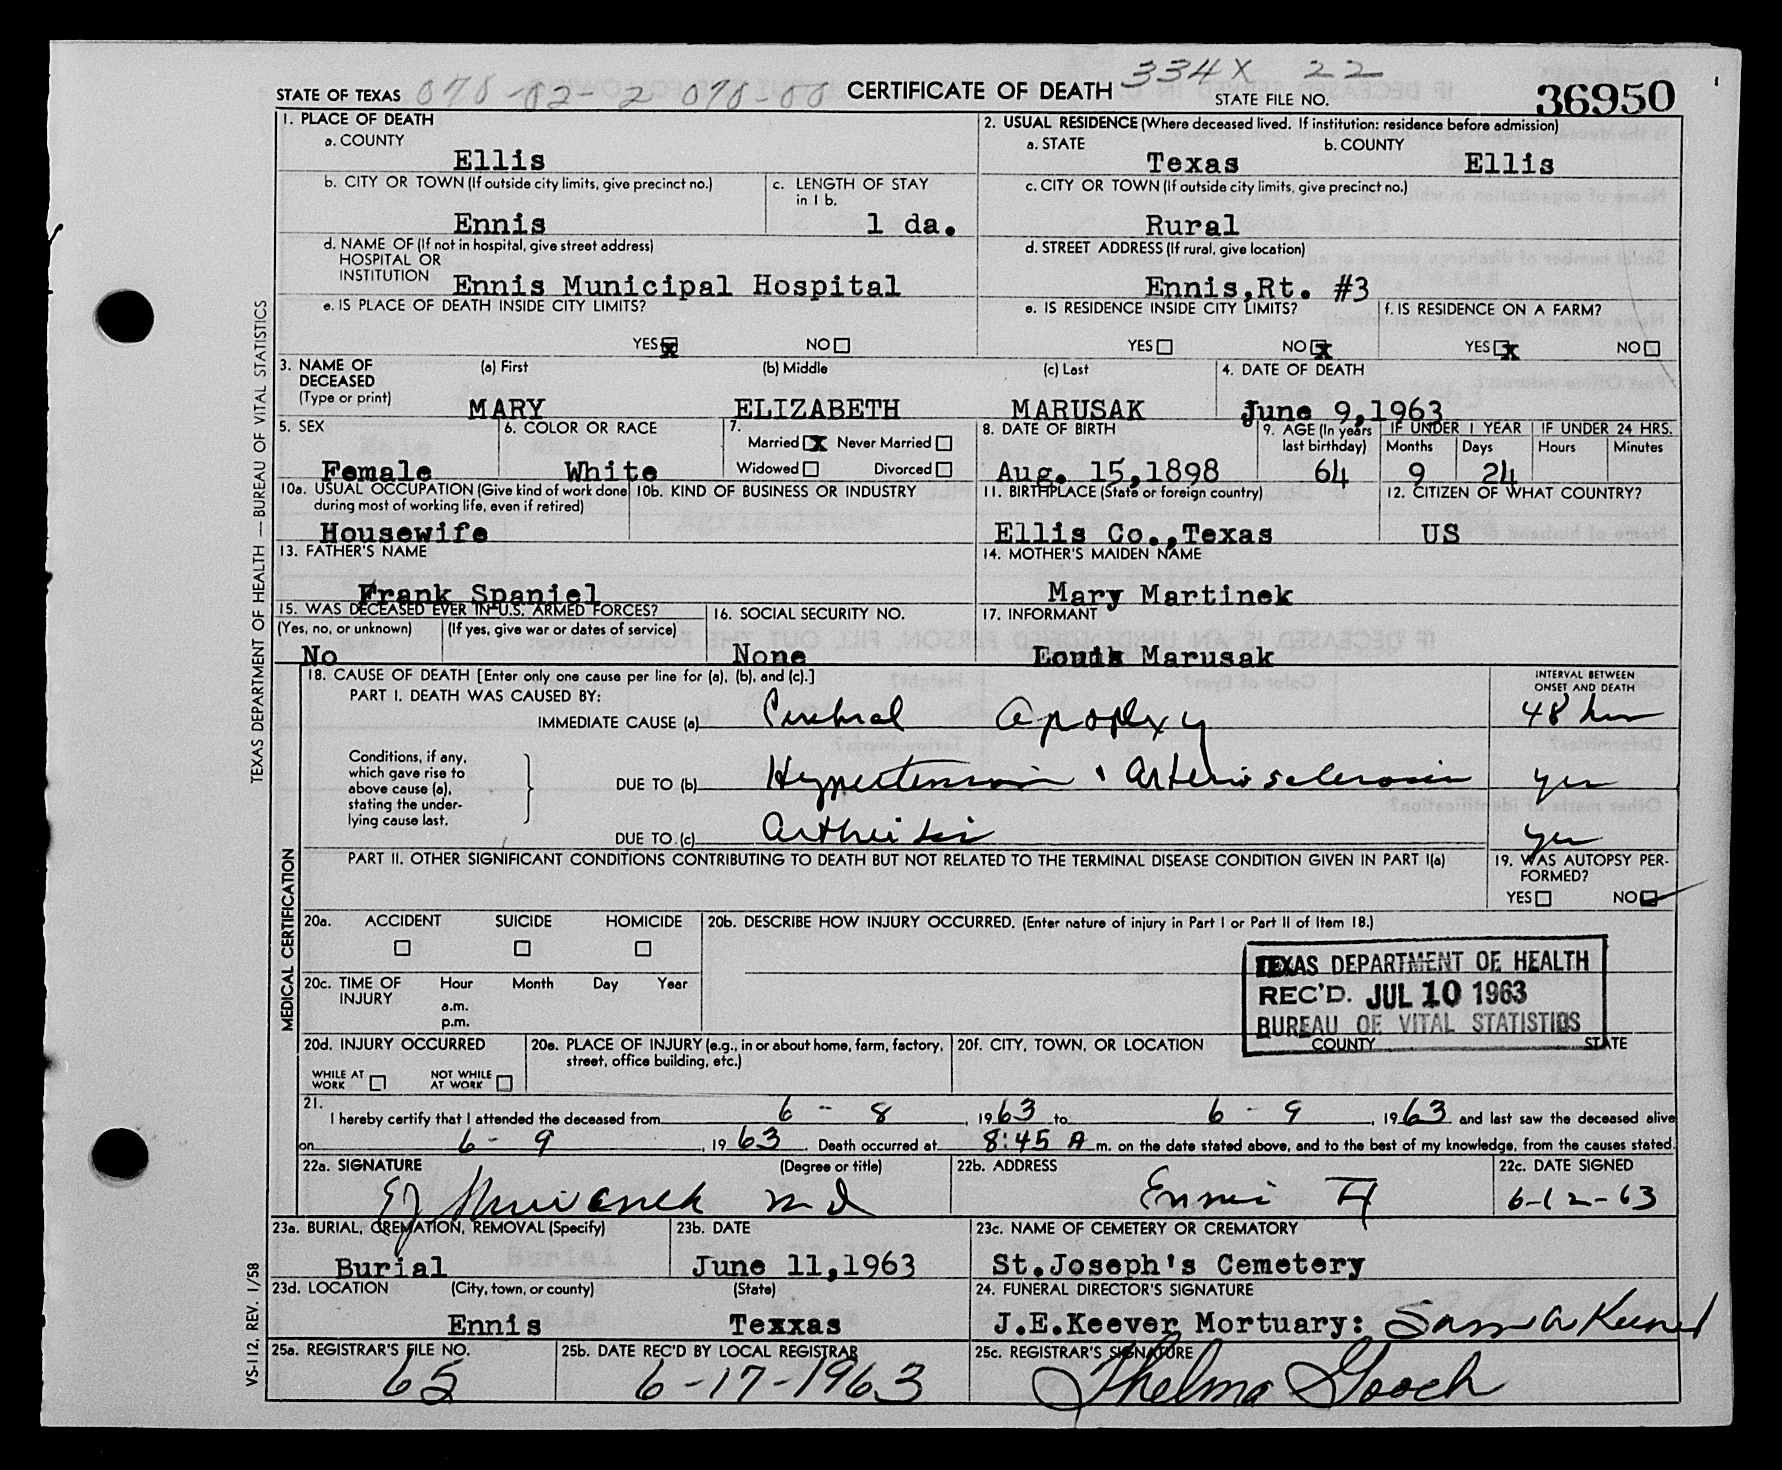 STATE OF TEXAS 078-02-2 070-00 CERTIFICATE OF DEATH 334X 22 STATE FILE NO. 36950
1. PLACE OF DEATH
a. COUNTY
Ellis
2. USUAL RESIDENCE (Where deceased lived. If institution: residence before admission)
a. STATE b. COUNTY
Texas Ellis
b. CITY OR TOWN (If outside city limits, give precinct no.)
Ennis
c. LENGTH OF STAY
in 1 b.
1 da.
c. CITY OR TOWN (If outside city limits, give precinct no.)
Rural
d. NAME OF (If not in hospital, give street address)
HOSPITAL OR
INSTITUTION Ennis Municipal Hospital
d. STREET ADDRESS (If rural, give location)
Ennis,Rt. #3
e. IS PLACE OF DEATH INSIDE CITY LIMITS?
YES X NO
e. IS RESIDENCE INSIDE CITY LIMITS?
YES NO X
f. IS RESIDENCE ON A FARM?
YES X NO
3. NAME OF
DECEASED
(Type or print)
(a) First (b) Middle (c) Last
MARY ELIZABETH MARUSAK
4. DATE OF DEATH
June 9,1963
5. SEX
Female
6. COLOR OR RACE
White
7.
Married X Never Married
Widowed Divorced
8. DATE OF BIRTH
Aug. 15,1898
9. AGE (In years
last birthday)
64
IF UNDER 1 YEAR
Months Days
9 24
IF UNDER 24 HRS.
Hours Minutes
10a. USUAL OCCUPATION (Give kind of work done
during most of working life, even if retired)
Housewife
10b. KIND OF BUSINESS OR INDUSTRY
11. BIRTHPLACE (State or foreign country)
Ellis Co.,Texas
12. CITIZEN OF WHAT COUNTRY?
US
13. FATHER'S NAME
Frank Spaniel
14. MOTHER'S MAIDEN NAME
Mary Martinek
15. WAS DECEASED EVER IN U.S. ARMED FORCES?
(Yes, no, or unknown) (If yes, give war or dates of service)
No
16. SOCIAL SECURITY NO.
None
17. INFORMANT
Louis Marusak
18. CAUSE OF DEATH [Enter only one cause per line for (a), (b), and (c).]
PART I. DEATH WAS CAUSED BY:
INTERVAL BETWEEN
ONSET AND DEATH
IMMEDIATE CAUSE (a) Cerebral apoplexy 48 hrs
Conditions, if any,
which gave rise to
above cause (a),
stating the under-
lying cause last.
DUE TO (b) Hypertension & Arteriosclerosis yrs
DUE TO (c) Arthritis yrs
PART II. OTHER SIGNIFICANT CONDITIONS CONTRIBUTING TO DEATH BUT NOT RELATED TO THE TERMINAL DISEASE CONDITION GIVEN IN PART I(a)
19. WAS AUTOPSY PER-
FORMED?
YES NO
20a. ACCIDENT SUICIDE HOMICIDE
20b. DESCRIBE HOW INJURY OCCURRED. (Enter nature of injury in Part I or Part II of Item 18.)
20c. TIME OF
INJURY
Hour Month Day Year
a.m.
p.m.
TEXAS DEPARTMENT OF HEALTH
REC'D. JUL 10 1963
BUREAU OF VITAL STATISTICS
20d. INJURY OCCURRED
WHILE AT
WORK
NOT WHILE
AT WORK
20e. PLACE OF INJURY (e.g., in or about home, farm, factory,
street, office building, etc.)
20f. CITY, TOWN, OR LOCATION COUNTY STATE
21.
I hereby certify that I attended the deceased from 6 - 8, 1963 to 6 - 9, 1963 and last saw the deceased alive
on 6 - 9, 1963. Death occurred at 8:45 A m. on the date stated above, and to the best of my knowledge, from the causes stated.
22a. SIGNATURE (Degree or title)
MD
22b. ADDRESS
Ennis TX
22c. DATE SIGNED
6-12-63
23a. BURIAL, CREMATION, REMOVAL (Specify)
Burial
23b. DATE
June 11,1963
23c. NAME OF CEMETERY OR CREMATORY
St.Joseph's Cemetery
23d. LOCATION (City, town, or county) (State)
Ennis Texxas
24. FUNERAL DIRECTOR'S SIGNATURE
J.E.Keever Mortuary:
25a. REGISTRAR'S FILE NO.
65
25b. DATE REC'D BY LOCAL REGISTRAR
6-17-1963
25c. REGISTRAR'S SIGNATURE
Thelma Gooch
TEXAS DEPARTMENT OF HEALTH — BUREAU OF VITAL STATISTICS
MEDICAL CERTIFICATION
VS-112, REV. 1/58